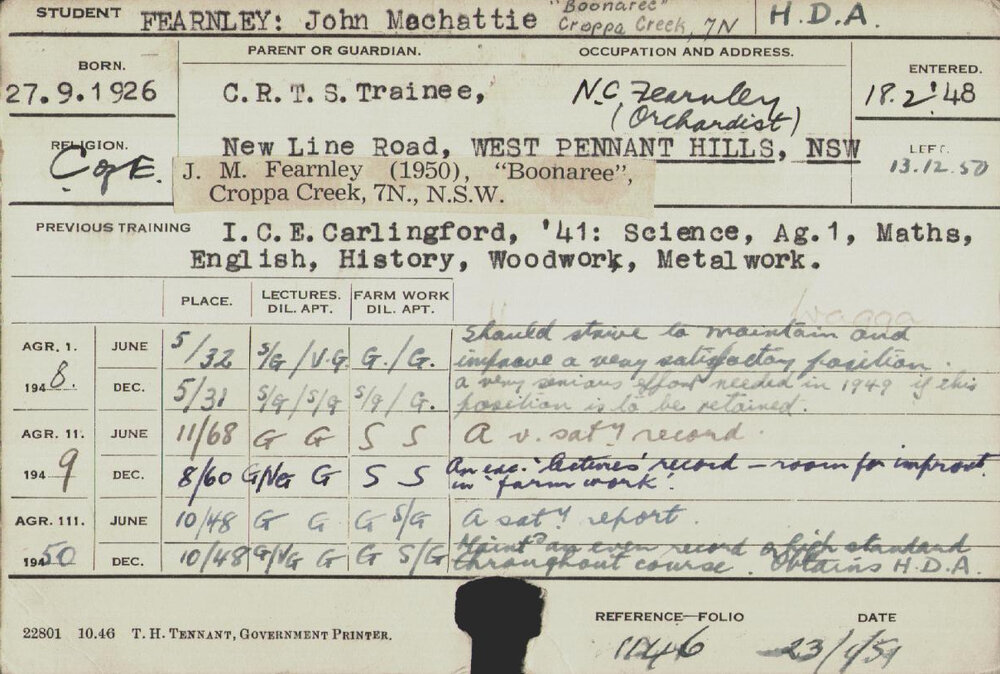 STUDENT FEARNLEY: John Machattie "Boonaree" H.D.A.
Croppa Creek, 7N
PARENT OR GUARDIAN. OCCUPATION AND ADDRESS.
BORN. ENTERED.
27.9.1926 C.R.T.S.Trainee, N.C. Fearnley 18.2.'48
(Orchardist)
RELIGION. New Line Road, WEST PENNANT HILLS, NSW LEFT.
C of E. J. M. Fearnley (1950), "Boonaree", 13.12.50
Croppa Creek, 7N., N.S.W.
PREVIOUS TRAINING I.C.E.Carlingford, '41: Science, Ag.1, Maths,
English, History, Woodwork, Metalwork.
PLACE. LECTURES. FARM WORK
DIL. APT. DIL. APT.
Wagga
Should strive to maintain and
AGR. 1. JUNE 5/32 S/G / V.G. G. / G. improve a very satisfactory position.
a very serious effort needed in 1949 if this
1948. DEC. 5/31 S/G / S/G S/G / G. position is to be retained.
AGR. 11. JUNE 11/68 G G S S A v. saty record.
1949 DEC. 8/60 G/VG G S S An exc. 'lectures' record – room for improvt
in 'farm work'.
AGR. 111. JUNE 10/48 G G G S/G A saty report.
Maintd an even record of high standard
1950 DEC. 10/48 G/VG G G S/G throughout course. Obtains H.D.A.
REFERENCE—FOLIO DATE
22801 10.46 T. H. TENNANT, GOVERNMENT PRINTER.
1146